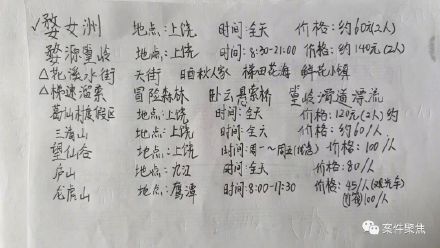 ✓婺女洲 地点:上饶 时间:全天 价格:约60元(2人)
婺源篁岭 地点:上饶 时间:8:30-21:00 价格:约140元(2人)
△花溪水街 天街 晒秋人家 梯田花海 鲜花小镇
△梯速溜索 冒险森林 卧云悬索桥 篁岭滑道漂流
葛仙村度假区 地点:上饶 时间:全天 价格:120元(2人)约
三清山 地点:上饶 时间:全天 价格:约60/人
望仙谷 地点:上饶 时间:周一~周五(优惠) 价格:100/人
庐山 地点:九江 时间:全天 价格:80/人
龙虎山 地点:鹰潭 时间:8:00-17:30 价格:45/人(观光车)
100/人
案件聚焦